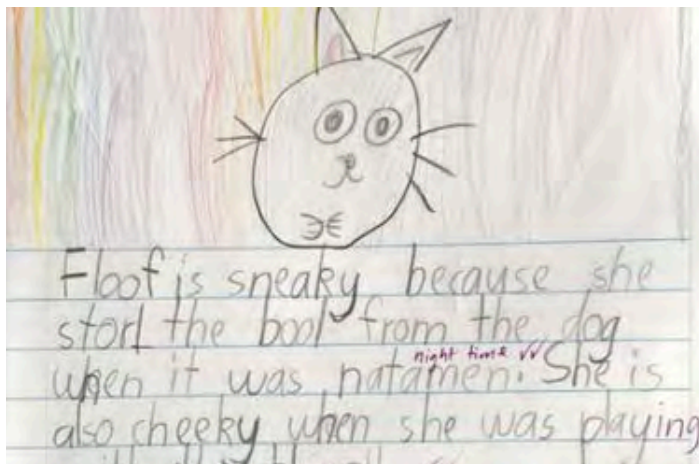 Floof is sneaky because she
storl the bool from the dog
night time ✓✓
when it was natamen. She is
also cheeky when she was playing